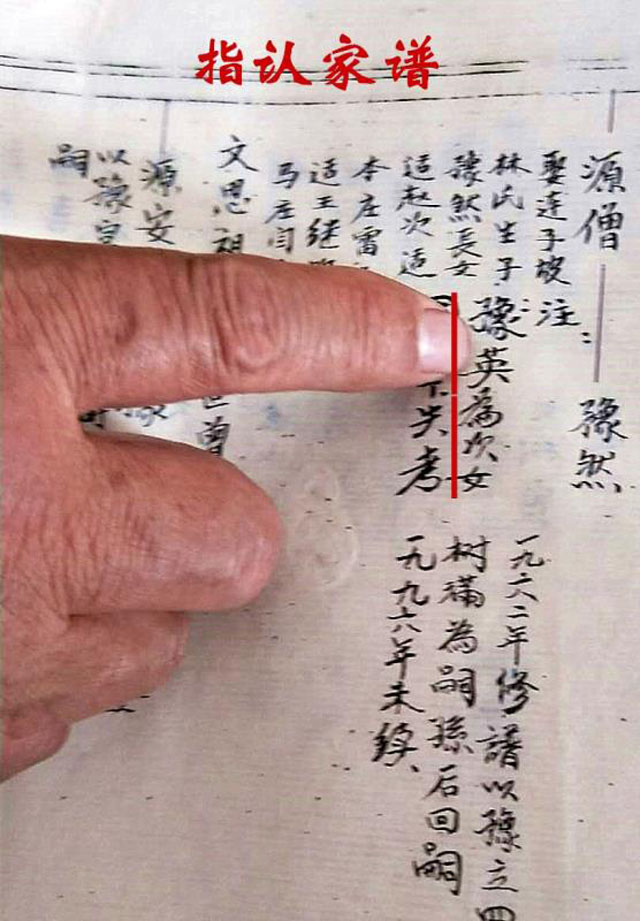 指认家谱
源僧
豫然
娶连子坡
林氏生子
豫然長女
适赵次适
本庄雷
适王继
马庄闫
注：
豫英為次女
失考
一九六二年修譜以豫立四
树满為嗣孫后回嗣
一九九六年未续、
文思祖
世曾
源安
以豫
嗣